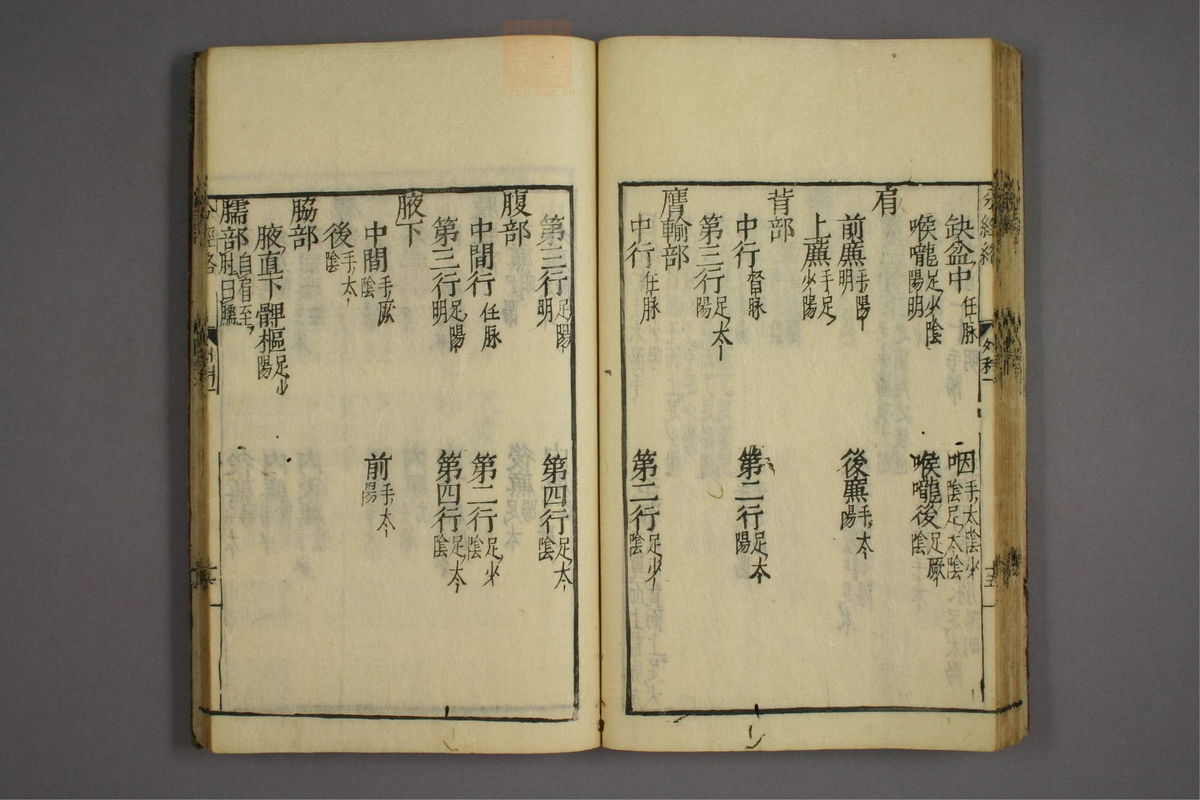 缺盆中 任脉 咽 手太陰少陰足太陰
喉嚨 足少陰陽明 喉嚨後 足厥陰
肩
前廉 手陽明 後廉 手太陽
上廉 手足少陽
背部
中行 督脉 第二行 足太陽
第三行 足太陽
膺輸部
中行 任脉 第二行 足少陰
第三行 足陽明 第四行 足太陰
腹部
中間行 任脉 第二行 足少陰
第三行 足陽明 第四行 足太陰
腋下
中間 手厥陰 前 手太陽
後 手太陰
脇部
腋直下髀樞 足少陽
臑部 自肩至肘曰臑